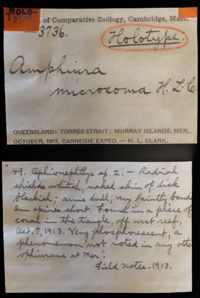 HOLO-
TYPE
of Comparative Zoölogy, Cambridge, Mass.
No. 3736.
Holotype.
Amphiura
microsoma H.L.C.
QUEENSLAND: TORRES STRAIT: MURRAY ISLANDS, MER,
OCTOBER, 1913. CARNEGIE EXPED. — H. L. CLARK.
49. Ophionephthys sp. 2. — Radial
shields whitish, naked skin of disk
blackish; arms dull, very faintly banded
arm spines short. Found in a piece of
coral in the tangle, off west reef,
Oct. 7, 1913. Very phosphorescent, a
phenomenon not noted in any other
ophiuran at Mer.
Field Notes - 1913.